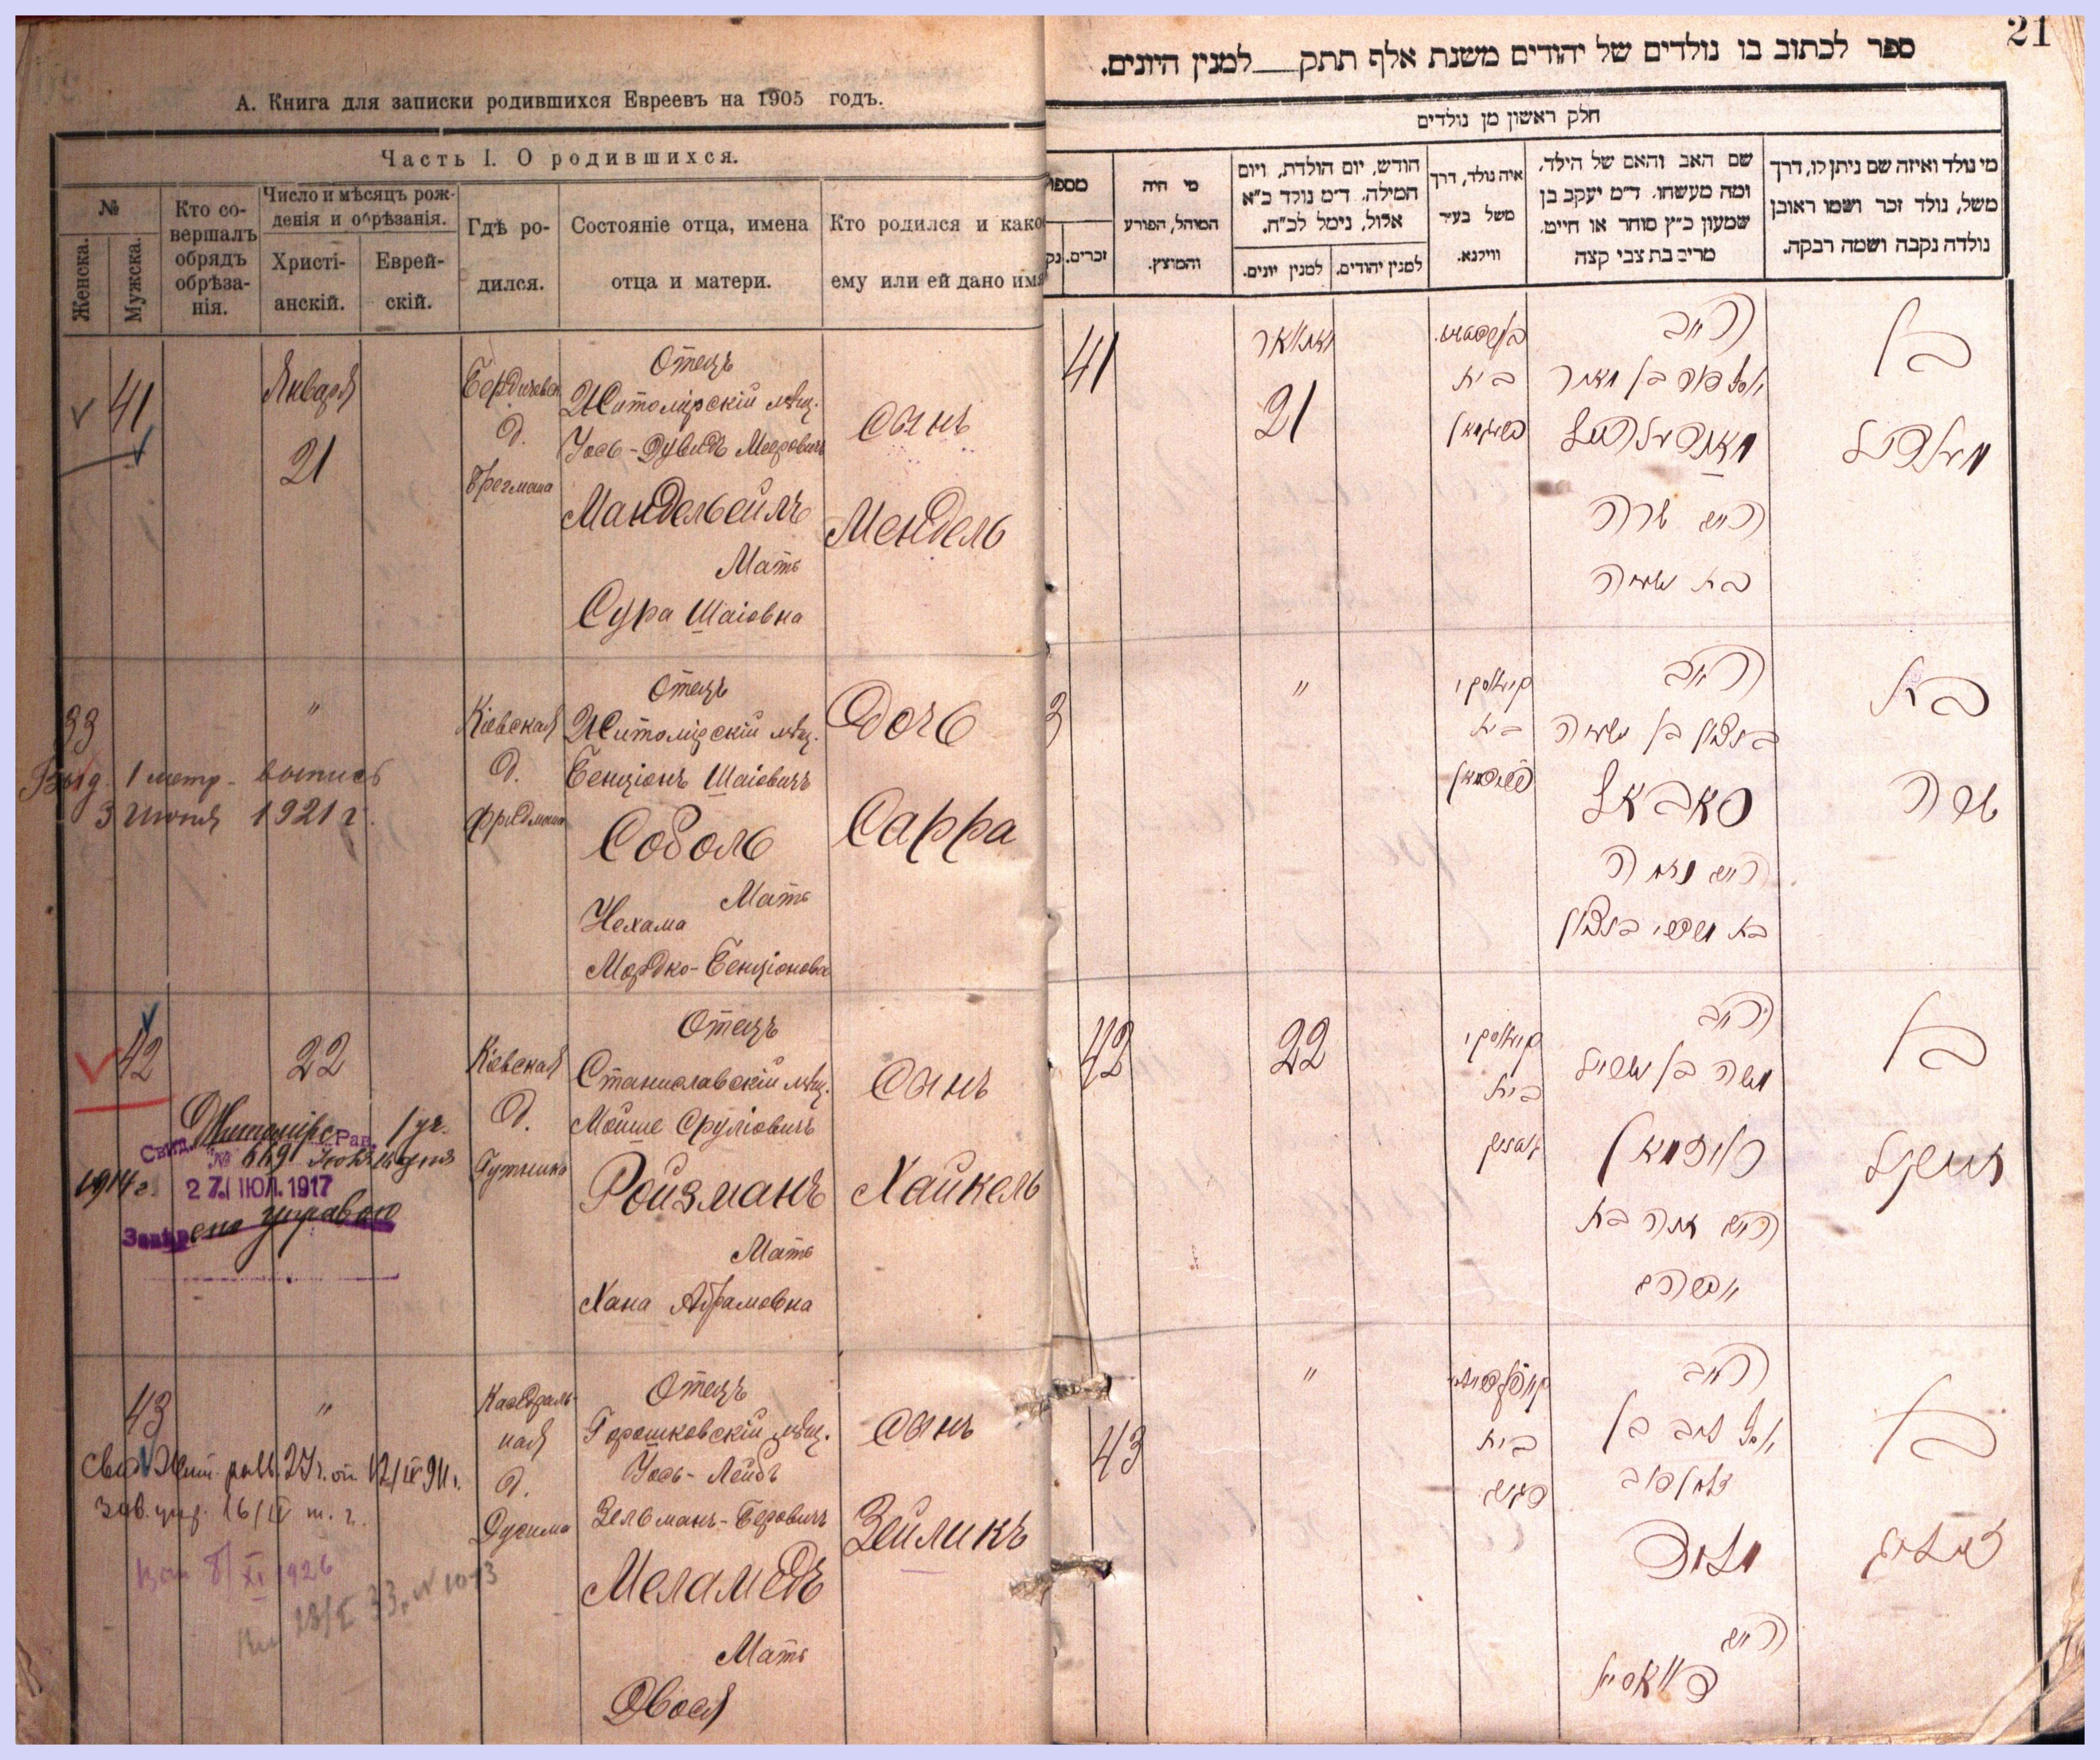 А. Книга для записки родившихся Евреевъ на 1905 годъ.
Часть I. О родившихся.
№
Женска.
Мужска.
Кто со-
вершалъ
обрядъ
обрѣза-
нія.
Число и мѣсяцъ рож-
денія и обрѣзанія.
Христі-
анскій.
Еврей-
скій.
Гдѣ ро-
дился.
Состояніе отца, имена
отца и матери.
Кто родился и како
ему или ей дано имя
41
Января
21
Бердичевск
д.
Брегмана
Отецъ
Житомірскій мѣщ.
Іось-Дувидъ Мееровичъ
Мандельейль
Мать
Сура Шаіовна
сынъ
Мендель
33
"
Выд. 1 метр. выпись
3 Июня 1921 г.
Кіевская
д.
Фридмана
Отецъ
Житомірскій мѣщ.
Бенціонъ Шаіовичъ
Соболь
Мать
Нехама
Мордко-Бенціоновна
Дочь
Сарра
42
22
1914 г.
27 ІЮЛ. 1917
управою
Кіевская
д.
Гутника
Отецъ
Станиславскій мѣщ.
Мойше Сруліовичъ
Ройзманъ
Мать
Хана Абрамовна
сынъ
Хайкель
43
"
1926
Каѳедраль-
ная
д.
Дусима
Отецъ
Горошковскій мѣщ.
Іось-Лейбъ
Зельманъ-Беровичъ
Меламедъ
Мать
Двося
сынъ
Зейликъ
21
ספר לכתוב בו נולדים של יהודים משנת אלף תתק למנין היונים.
חלק ראשון מן נולדים
מי נולד ואיזה שם ניתן לו, דרך
משל, נולד זכר ושמו ראובן
נולדה נקבה ושמה רבקה.
שם האב והאם של הילד,
ומה מעשהו. ד״מ יעקב בן
שמעון כ״ץ סוחר או חייט,
מרים בת צבי קצה
איה נולד, דרך
משל בעיר
ווילנא.
חודש, יום הולדת, ויום
המילה, ד״מ נולד כ״א
אלול, נימל לכ״ח.
למנין יהודים.
למנין יונים.
מי היה
המוהל, הפורע
והמוצץ.
מספר
זכרים.
41
יאנואר
21
בית
האב
יוסף דוד בן מאיר
האם שרה
בת ישעיה
בן
מענדיל
"
בית
האב
בנציון בן ישעיה
סאבאל
האם נחמה
בת מרדכי בנציון
בת
שרה
42
22
בית
האב
משה בן ישראל
רויזמאן
האם חנה בת
אברהם
בן
חייקיל
43
"
בית
האב
יוסף ליב בן
זלמן דוב
מלמד
האם
דוואסיל
בן
זעליג